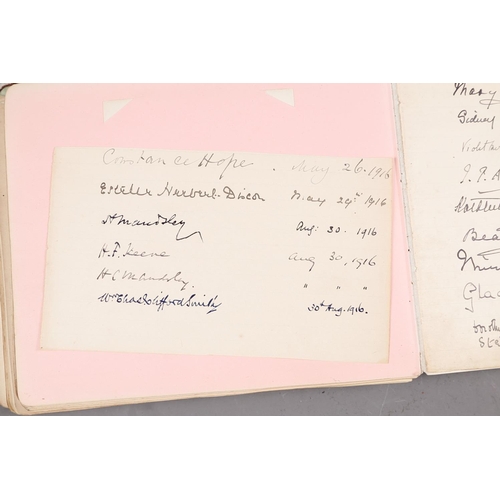 Constance Hope. May 26. 1916
Estelle Herbert-Discon May 29th 1916
A Maudsley Aug: 30. 1916
H.F. Keene Aug 30, 1916
H C Maudsley. " " "
Wm Chas Clifford Smith 30th Aug. 1916.
Mary
Sidney
Violet
J. P. A
Kathleen
Bea
Glad
Doroth